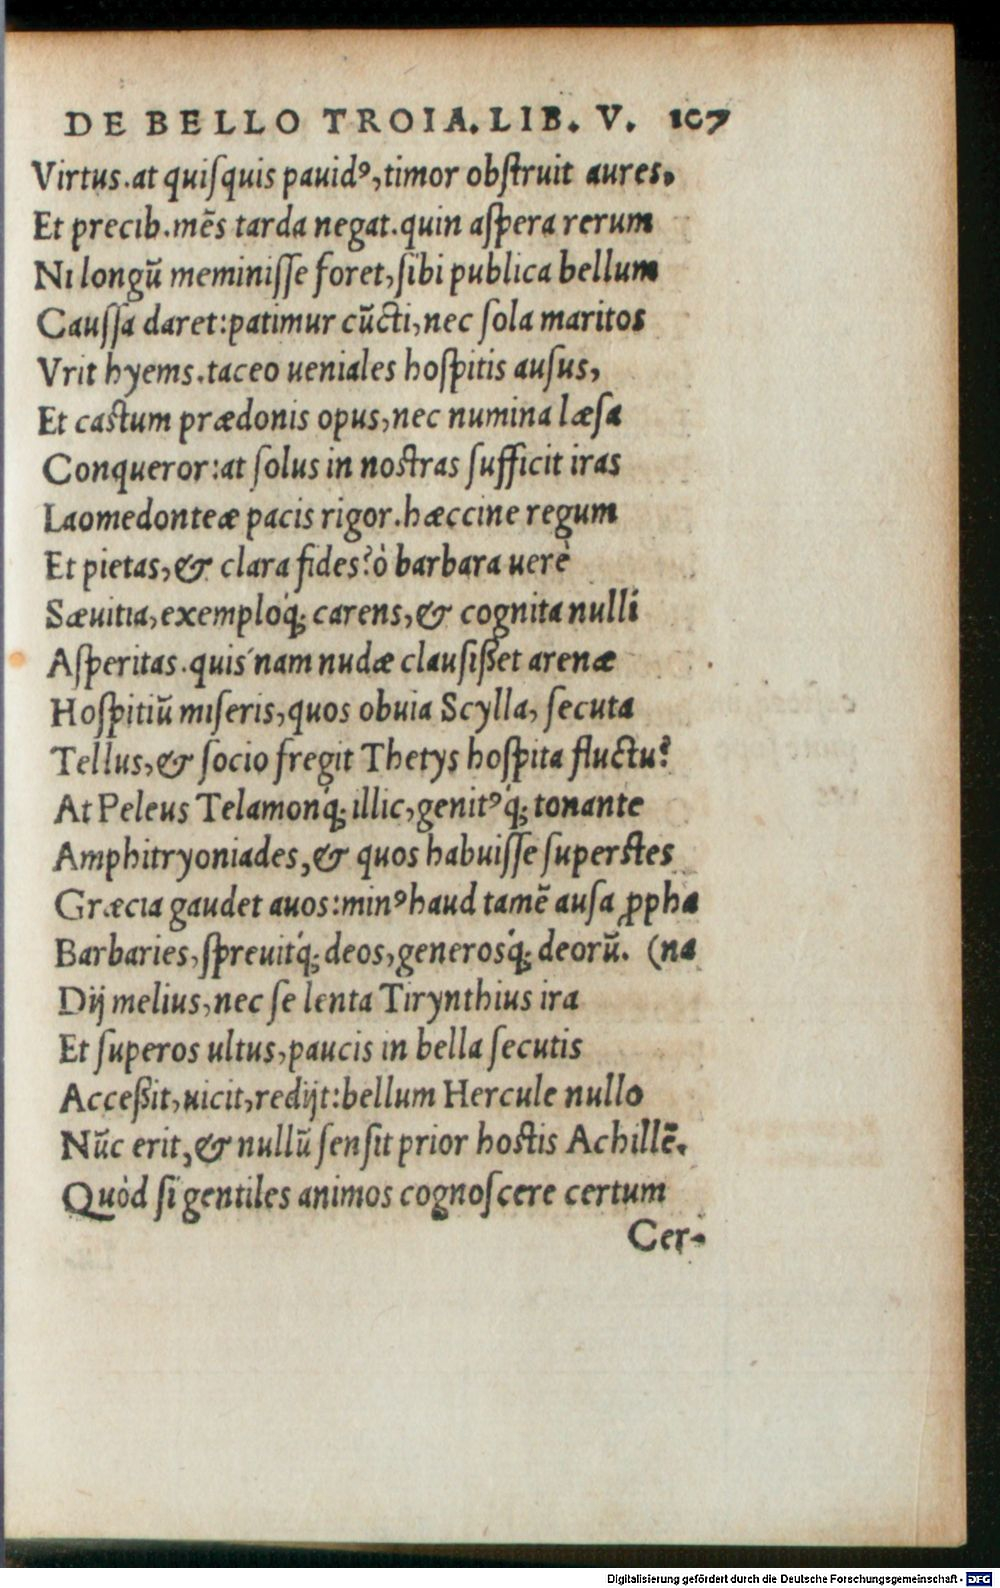 DE BELLO TROIA. LIB. V. 107
Virtus. at quiſquis pauidꝰ, timor obſtruit aures,
Et precib. mẽs tarda negat. quin aſpera rerum
Ni longũ meminiſſe foret, ſibi publica bellum
Cauſſa daret: patimur cũcti, nec ſola maritos
Vrit hyems. taceo ueniales hoſpitis auſus,
Et castum prædonis opus, nec numina læſa
Conqueror: at ſolus in nostras ſufficit iras
Laomedonteæ pacis rigor. hæccine regum
Et pietas, & clara fides? ò barbara uerè
Sæuitia, exemploq́; carens, & cognita nulli
Aſperitas. quis´nam nudæ clauſißet arenæ
Hoſpitiũ miſeris, quos obuia Scylla, ſecuta
Tellus, & ſocio fregit Thetys hoſpita fluctu?
At Peleus Telamonq́; illic, genitꝰq́; tonante
Amphitryoniades, & quos habuiſſe ſuperstes
Græcia gaudet auos: minꝰ haud tamẽ auſa ꝓpha
Barbaries, ſpreuitq́; deos, generosq́; deorũ. (na
Dij melius, nec ſe lenta Tirynthius ira
Et ſuperos ultus, paucis in bella ſecutis
Acceßit, uicit, redijt: bellum Hercule nullo
Nũc erit, & nullũ ſenſit prior hostis Achillẽ.
Quòd ſi gentiles animos cognoſcere certum
Cer-
Digitalisierung gefördert durch die Deutsche Forschungsgemeinschaft - DFG